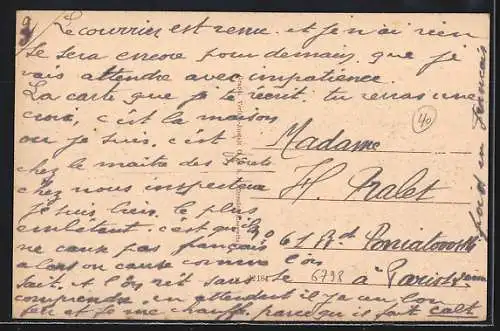 Le courrier est venu et je n'ai rien
se sera encore pour demain, que je
vais attendre avec impatience.
La carte que je te écrit. tu verras une
croix, c'est la maison
ou je suis, c'est
chez le maitre des
chez nous inspecteur
je suis bien, le plus
embêtant, c'est qu'ils
ne cause pas français
alors on cause comme l'on
sait, et l'on rit sans se
comprendre, en attendant il y a un bon
feu et je me chauffe parce qu'il fait
40
Madame
H. Ralet
61 Bd Poniatowski
à Paris
6798